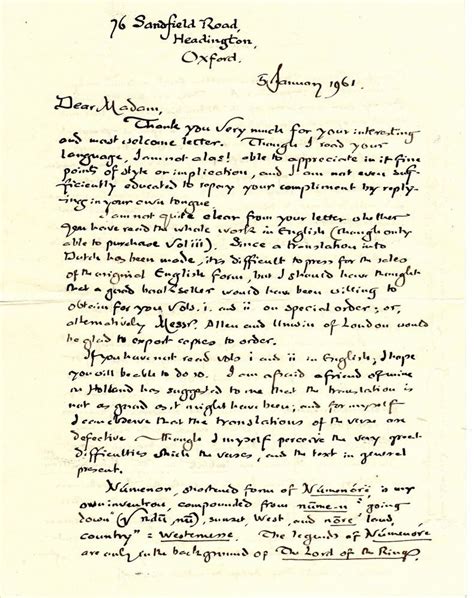 76 Sandfield Road,
Headington,
Oxford.
5 January 1961.
Dear Madam,
Thank you very much for your interesting
and most welcome letter. Though I read your
language, I am not alas! able to appreciate in it fine
points of style or implication, and I am not even suf-
ficiently educated to repay your compliment by reply-
ing in your own tongue.
I am not quite clear from your letter whether
you have read the whole work in English (though only
able to purchase Vol iii). Since a translation into
Dutch has been made, it is difficult to press for the sales
of the original English form, but I should have thought
that a good bookseller would have been willing to
obtain for you Vols. i. and ii on special order; or,
alternatively Messr. Allen and Unwin of London would
be glad to export copies to order.
If you have not read vols i and ii in English, I hope
you will be able to do so. I am afraid a friend of mine
in Holland has suggested to me that the translation is
not as good as it might have been; and for myself
I can observe that the translations of the verse are
defective though I myself perceive the very great
difficulties which the verses, and the text in general
present.
Númenor, shortened form of Númenóre, is my
own invention, compounded from nūme-n "going
down" (√ndū, nū), sunset, West, and nōre "land,
country" = Westernesse. The legends of Númenóre
are only in the background of The Lord of the Rings,